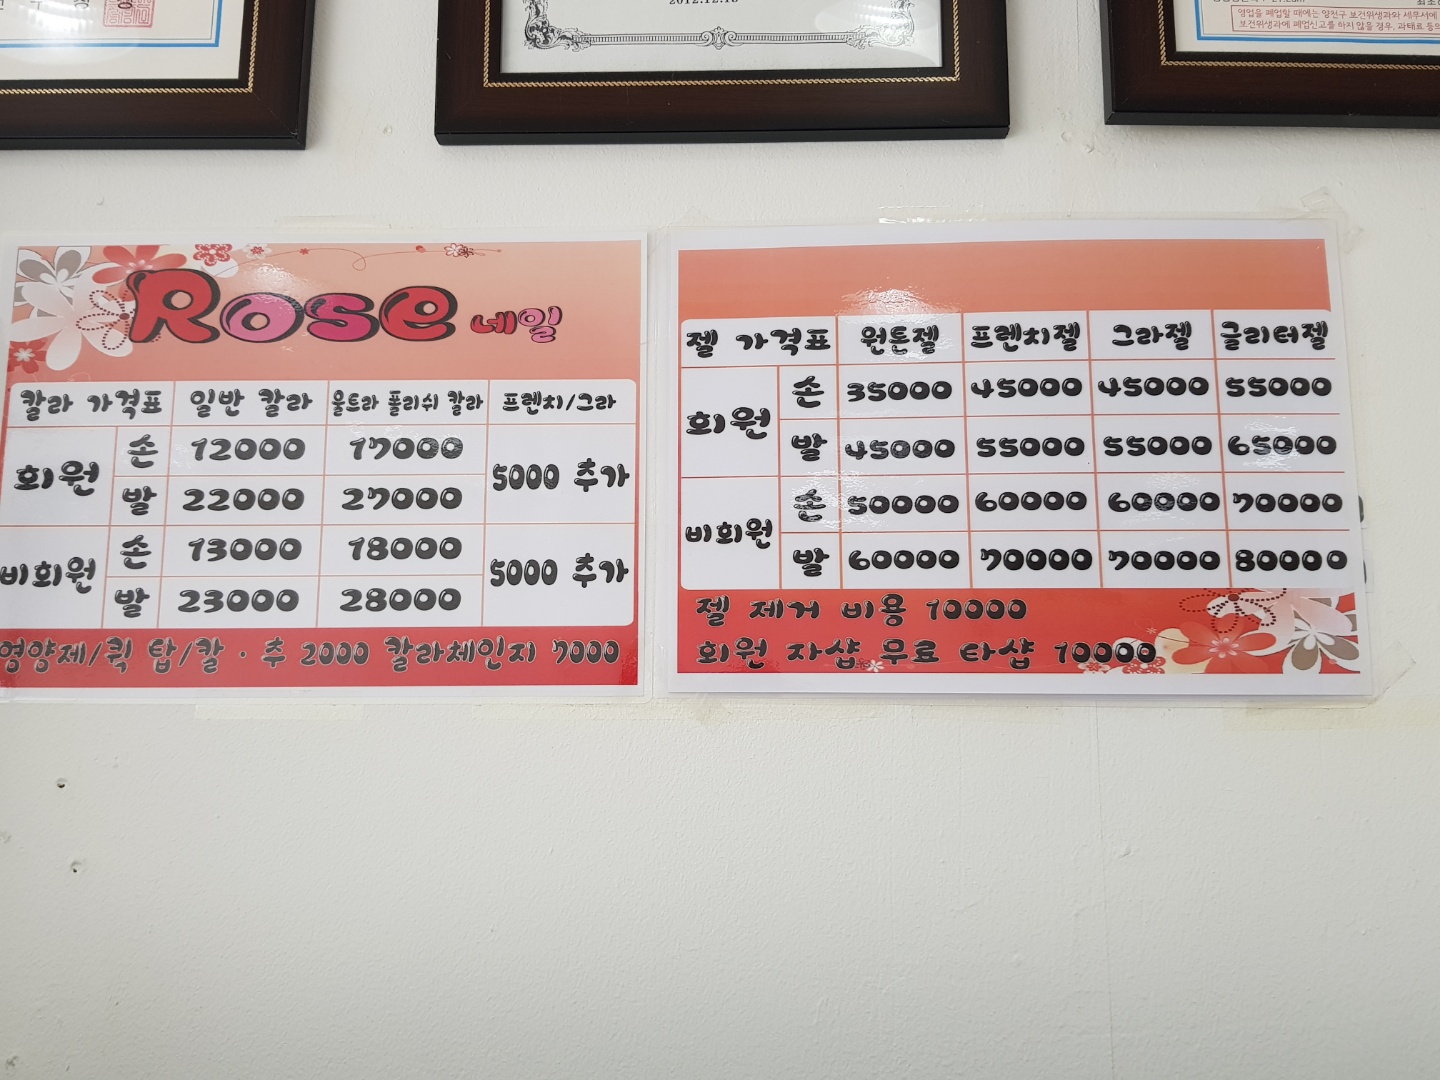 2012.12.18
영업을 폐업할 때에는 양천구 보건위생과와 세무서에
보건위생과에 폐업신고를 하지 않을 경우, 과태료 등의
Rose 네일
칼라 가격표 일반 칼라 울트라 폴리쉬 칼라 프렌치/그라
회원 손 12000 17000 5000 추가
발 22000 27000
비회원 손 13000 18000 5000 추가
발 23000 28000
영양제/퀵 탑/칼 · 추 2000 칼라체인지 7000
젤 가격표 원톤젤 프렌치젤 그라젤 글리터젤
회원 손 35000 45000 45000 55000
발 45000 55000 55000 65000
비회원 손 50000 60000 60000 70000
발 60000 70000 70000 80000
젤 제거 비용 10000
회원 자샵 무료 타샵 10000